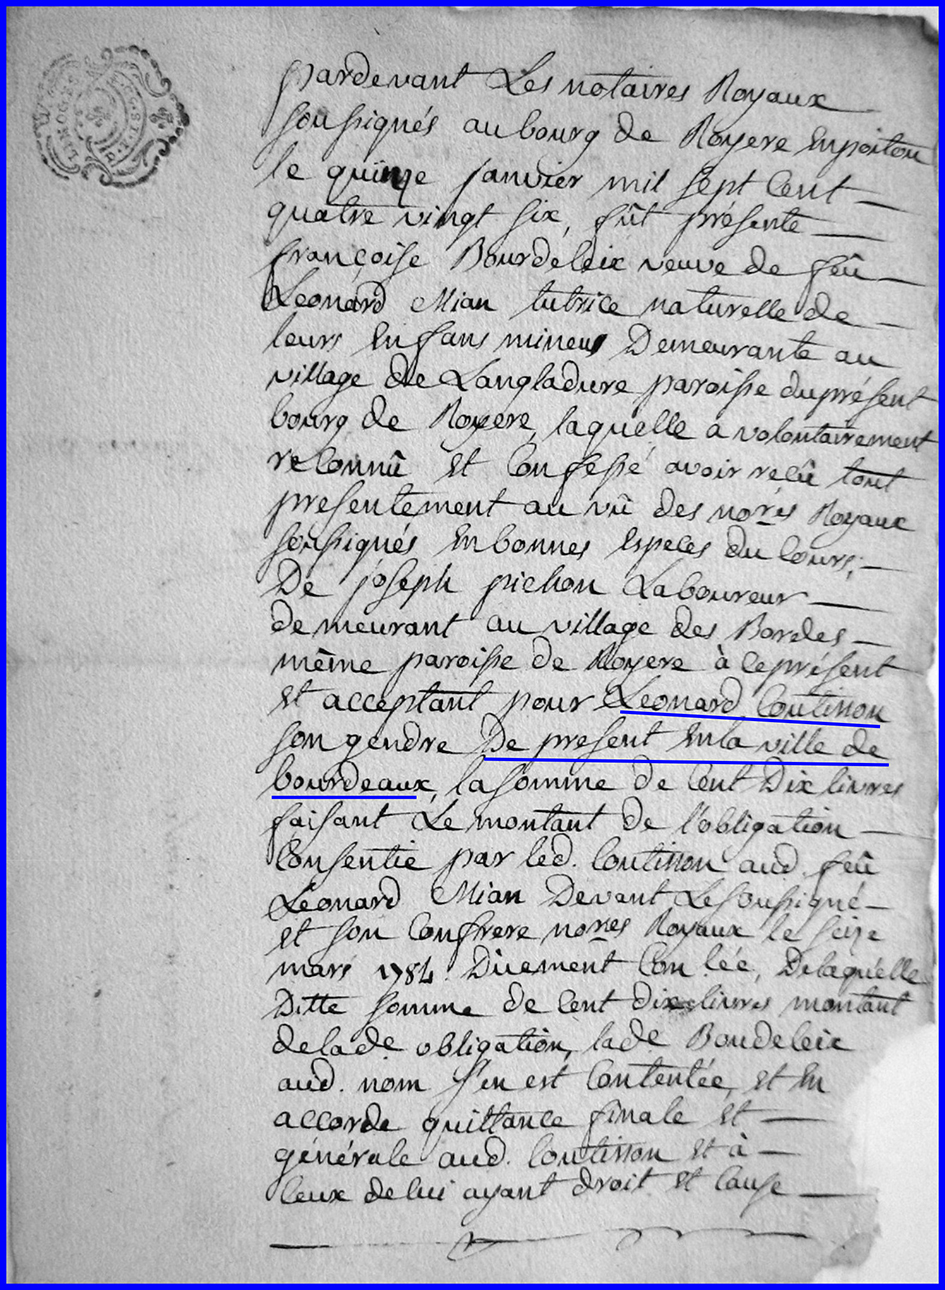 pardevant Les notaires Royaux
soussignés au bourg de Royere en poitou
le quinze janvier mil sept Cent
quatre vingt six, fût présente
françoise Bourdeleix veuve de feû
Leonard Mian tutrice naturelle de
leurs Enfans mineurs Demeurante au
village de Langladure paroisse du présent
bourg de Royere, laquelle a volontairement
reConnû Et Confessé avoir reçû tout
presentement au vû des no.res Royaux
soussignés En bonnes Especes du Cours,
De joseph pichon Laboureur
demeurant au village des Bordes
même paroisse de Royere à ce présent
Et acceptant pour Leonard Coutisson
son gendre De present En la ville de
bourdeaux, la somme de Cent Dix livres
faisant Le montant de l'obligation
Consentie par led. Coutisson aud. feû
Leonard Mian Devant Le soussigné
et son Confrere no.res Royaux le seize
mars 1784. Duement Con lée, De laquelle
Ditte somme de Cent dix livres montant
de lade obligation, lade Boudeleix
aud. nom s'en est Contentée, et En
accorde quittance finale et
générale aud. Coutisson et à
Ceux de lui ayant droit et Cause
LIMOGES